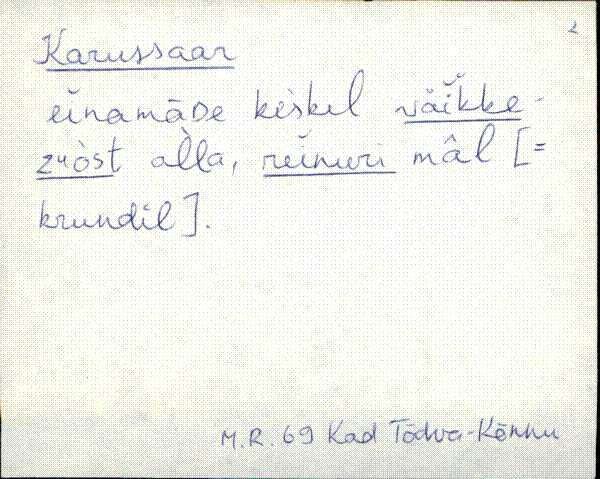 2
Karussaar
eĭnamāDe kèskel väĭkke-
zuòst àlla, reĭnuri mâl [=
krundil].
M.R. 69 Kad Tōdva-Kēnnu